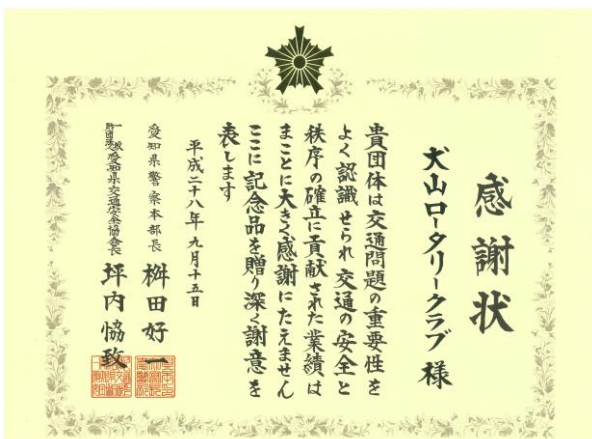 感謝状
犬山ロータリークラブ様
貴団体は交通問題の重要性を
よく認識せられ交通の安全と
秩序の確立に貢献された業績は
まことに大きく感謝にたえません
ここに記念品を贈り深く謝意を
表します
平成二十八年九月十五日
愛知県警察本部長 桝田好一
一般財団法人愛知県交通安全協会会長 坪内恊致